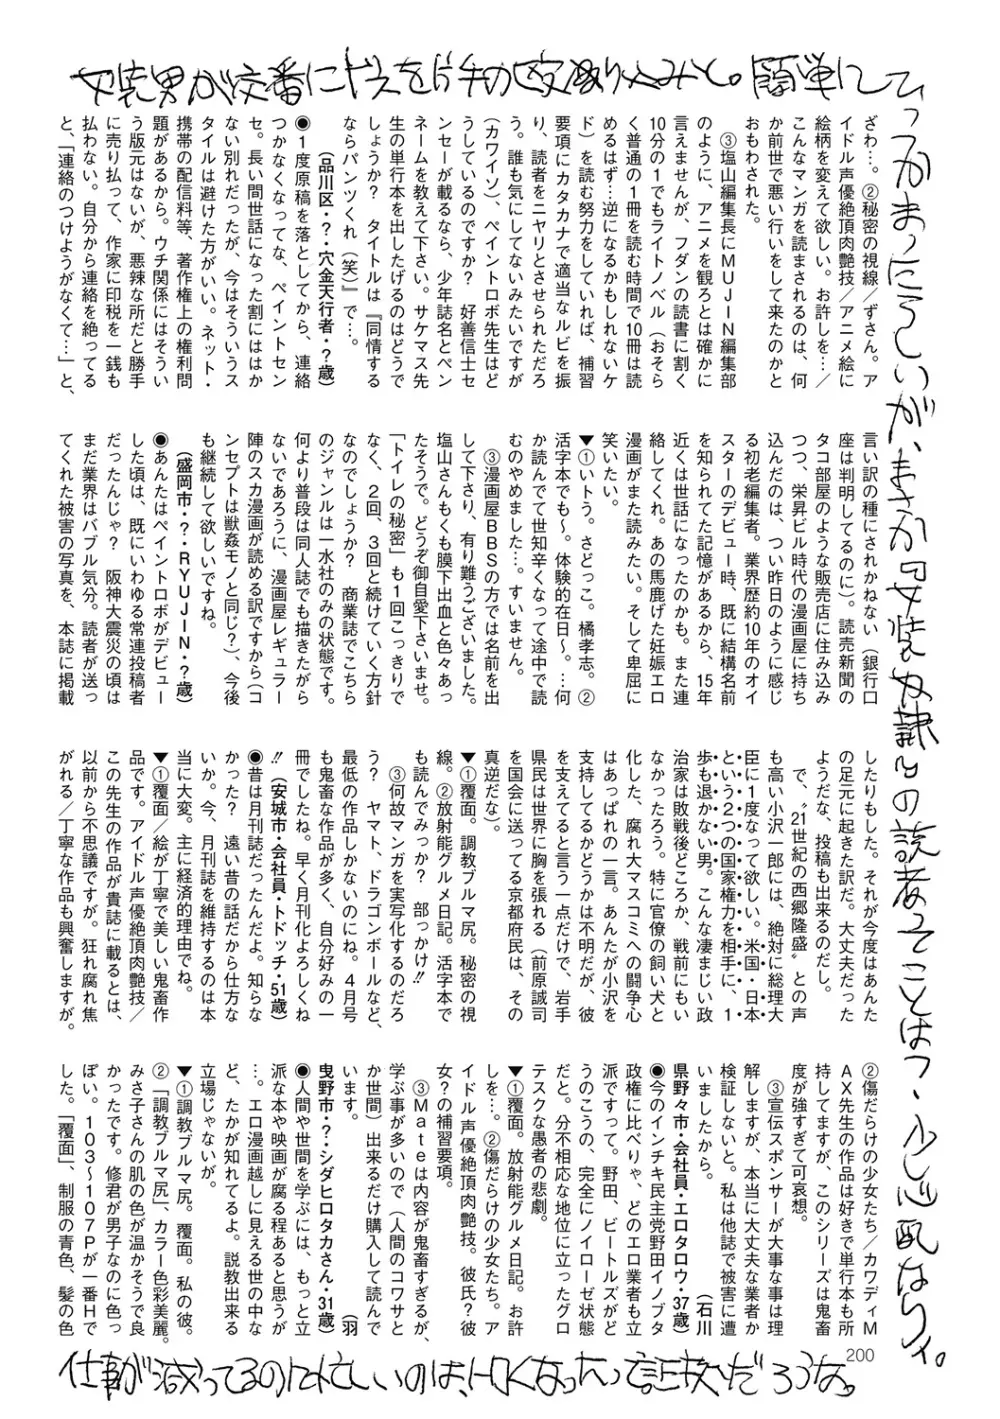 女装男が交番にドスを片手の殴り込みと。簡単に
ざわ…。②秘密の視線／ずさん。ア
イドル声優絶頂肉艶技／アニメ絵に
絵柄を変えて欲しい。お許しを…／
こんなマンガを読まされるのは、何
か前世で悪い行いをして来たのかと
おもわされた。
③塩山編集長にMUJIN編集部
のように、アニメを観ろとは確かに
言えませんが、フダンの読書に割く
10分の1でもライトノベル（おそら
く普通の1冊を読む時間で10冊は読
めるはず…逆になるかもしれないケ
ド）を読む努力をしていれば、補習
要項にカタカナで適当なルビを振
り、読者をニヤリとさせられただろ
う。誰も気にしてないみたいですが
（カワイソ）、ペイントロボ先生はど
うしているのですか？　好善信士セ
ンセーが載るなら、少年誌名とペン
ネームを教えて下さい。サケマス先
生の単行本を出したげるのはどうで
しょうか？　タイトルは『同情する
ならパンツくれ（笑）』で…。
（品川区・？・穴金天行者・？歳）
●1度原稿を落としてから、連絡
つかなくなってな、ペイントセン
セ。長い間世話になった割にははか
ない別れだったが、今はそういうス
タイルは避けた方がいい。ネット・
携帯の配信料等、著作権上の権利問
題があるから。ウチ関係にはそうい
う版元はないが、悪辣な所だと勝手
に売り払って、作家に印税を一銭も
払わない。自分から連絡を絶ってる
と、「連絡のつけようがなくて…」と、
言い訳の種にされかねない（銀行口
座は判明してるのに）。読売新聞の
タコ部屋のような販売店に住み込み
つつ、栄昇ビル時代の漫画屋に持ち
込んだのは、つい昨日のように感じ
る初老編集者。業界歴約10年のオイ
スターのデビュー時、既に結構名前
を知られてた記憶があるから、15年
近くは世話になったのかも。また連
絡してくれ。あの馬鹿げた妊娠エロ
漫画がまた読みたい。そして卑屈に
笑いたい。
▼①いトう。さどっこ。橘孝志。②
活字本でも〜。体験的在日〜。…何
か読んでて世知辛くなって途中で読
むのやめました…。すいません。
③漫画屋BBSの方では名前を出
して下さり、有り難うございました。
塩山さんもくも膜下出血と色々あっ
たそうで。どうぞ御自愛下さいませ。
「トイレの秘密」も1回こっきりで
なく、2回、3回と続けていく方針
なのでしょうか？　商業誌でこちら
のジャンルは一水社のみの状態です。
何より普段は同人誌でも描きたがら
ないであろうに、漫画屋レギュラー
陣のスカ漫画が読める訳ですから（コ
ンセプトは獣姦モノと同じ？）、今後
も継続して欲しいですね。
（盛岡市・？・RYUJIN・？歳）
●あんたはペイントロボがデビュー
した頃は、既にいわゆる常連投稿者
だったんじゃ？　阪神大震災の頃は
まだ業界はバブル気分。読者が送っ
てくれた被害の写真を、本誌に掲載
したりもした。それが今度はあんた
の足元に起きた訳だ。大丈夫だった
ようだな、投稿も出来るのだし。
で、〝21世紀の西郷隆盛〟との声
も高い小沢一郎には、絶対に総理大
臣に1度なって欲しい。米国・日本
という2つの国家権力を相手に、1
歩も退かない男。こんな凄まじい政
治家は敗戦後どころか、戦前にもい
なかったろう。特に官僚の飼い犬と
化した、腐れ大マスコミへの闘争心
はあっぱれの一言。あんたが小沢を
支持してるかどうかは不明だが、彼
を支えてると言う一点だけで、岩手
県民は世界に胸を張れる（前原誠司
を国会に送ってる京都府民は、その
真逆だな）。
▼①覆面。調教ブルマ尻。秘密の視
線。②放射能グルメ日記。活字本で
も読んでみっか？　部っけ!!
③何故マンガを実写化するのだろ
う？　ヤマト、ドラゴンボールなど、
最低の作品しかないのにね。4月号
も鬼畜な作品が多く、自分好みの一
冊でしたね。早く月刊化よろしくね
!!　（安城市・会社員・トドッチ・51歳）
●昔は月刊誌だったんだよ。知らな
かった？　遠い昔の話だから仕方な
いか。今、月刊誌を維持するのは本
当に大変。主に経済的理由でね。
▼①覆面／絵が丁寧で美しい鬼畜作
品です。アイドル声優絶頂肉艶技／
この先生の作品が貴誌に載るとは、
以前から不思議ですが。狂れ腐れ焦
がれる／丁寧な作品も興奮しますが。
②傷だらけの少女たち／カワディM
AX先生の作品は好きで単行本も所
持してますが、このシリーズは鬼畜
度が強すぎて可哀想。
③宣伝スポンサーが大事な事は理
解しますが、本当に大丈夫な業者か
検証しないと。私は他誌で被害に遭
いましたから。　（石川
県野々市・会社員・エロタロウ・37歳）
●今のインチキ民主党野田イノブタ
政権に比べりゃ、どのエロ業者も立
派ですって。野田、ビートルズがど
うのこうの、完全にノイローゼ状態
だと。分不相応な地位に立ったグロ
テスクな愚者の悲劇。
▼①覆面。放射能グルメ日記。お許
しを…。②傷だらけの少女たち。ア
イドル声優絶頂肉艶技。彼氏？彼
女？の補習要項。
③Mateは内容が鬼畜すぎるが、
学ぶ事が多いので（人間のコワサと
か世間）出来るだけ購入して読んで
います。　（羽
曳野市・？・シダヒロタカさん・31歳）
●人間や世間を学ぶには、もっと立
派な本や映画が腐る程あると思うが
…。エロ漫画越しに見える世の中な
ど、たかが知れてるよ。説教出来る
立場じゃないが。
▼①調教ブルマ尻。覆面。私の彼。
②「調教ブルマ尻」、カラー色彩美麗。
みさ子さんの肌の色が温かそうで良
かったです。修君が男子なのに色っ
ぽい。103〜107Pが一番Hで
した。「覆面」、制服の青色、髪の色
200
仕事が減ってるのに忙しいのは、トロくなったって証拠だろうな。